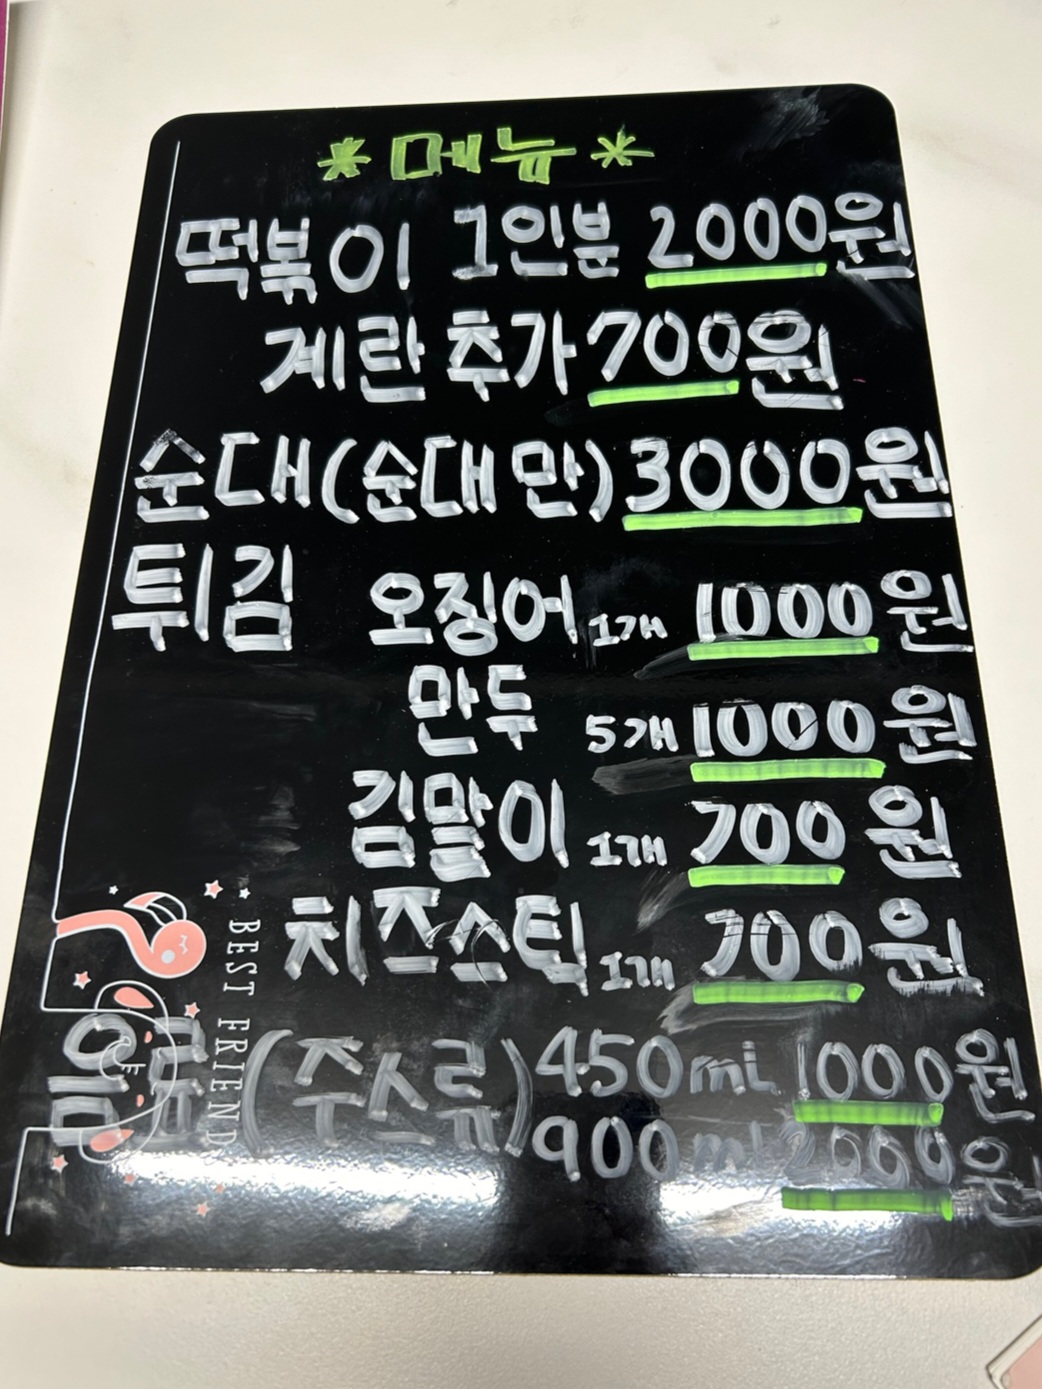 *메뉴*
떡볶이 1인분 2000원
계란 추가 700원
순대(순대만) 3000원
튀김 오징어 1개 1000원
만두 5개 1000원
김말이 1개 700원
치즈스틱 1개 700원
음료(주스류) 450ml 1000원
900ml 2000원
BEST FRIEND